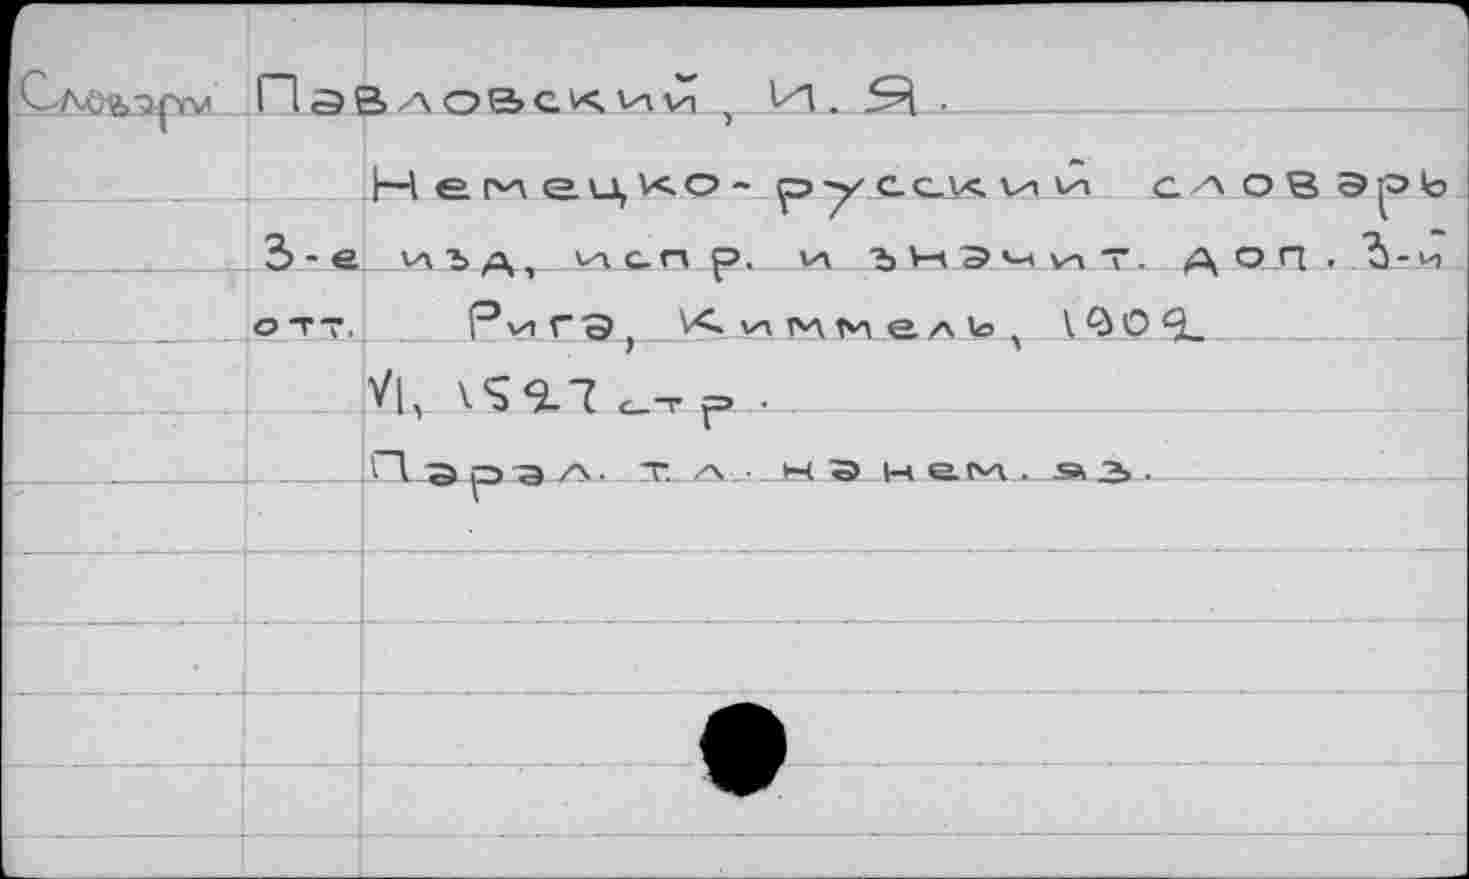 Словари Павловский, И. Я.
Немецко-русский словарь
3-е изд, испр. и значит. доп. 3-й
отт. Рига, Киммель, 1902
VI, 1527 стр.
Парал. т. л. на нем. яз.